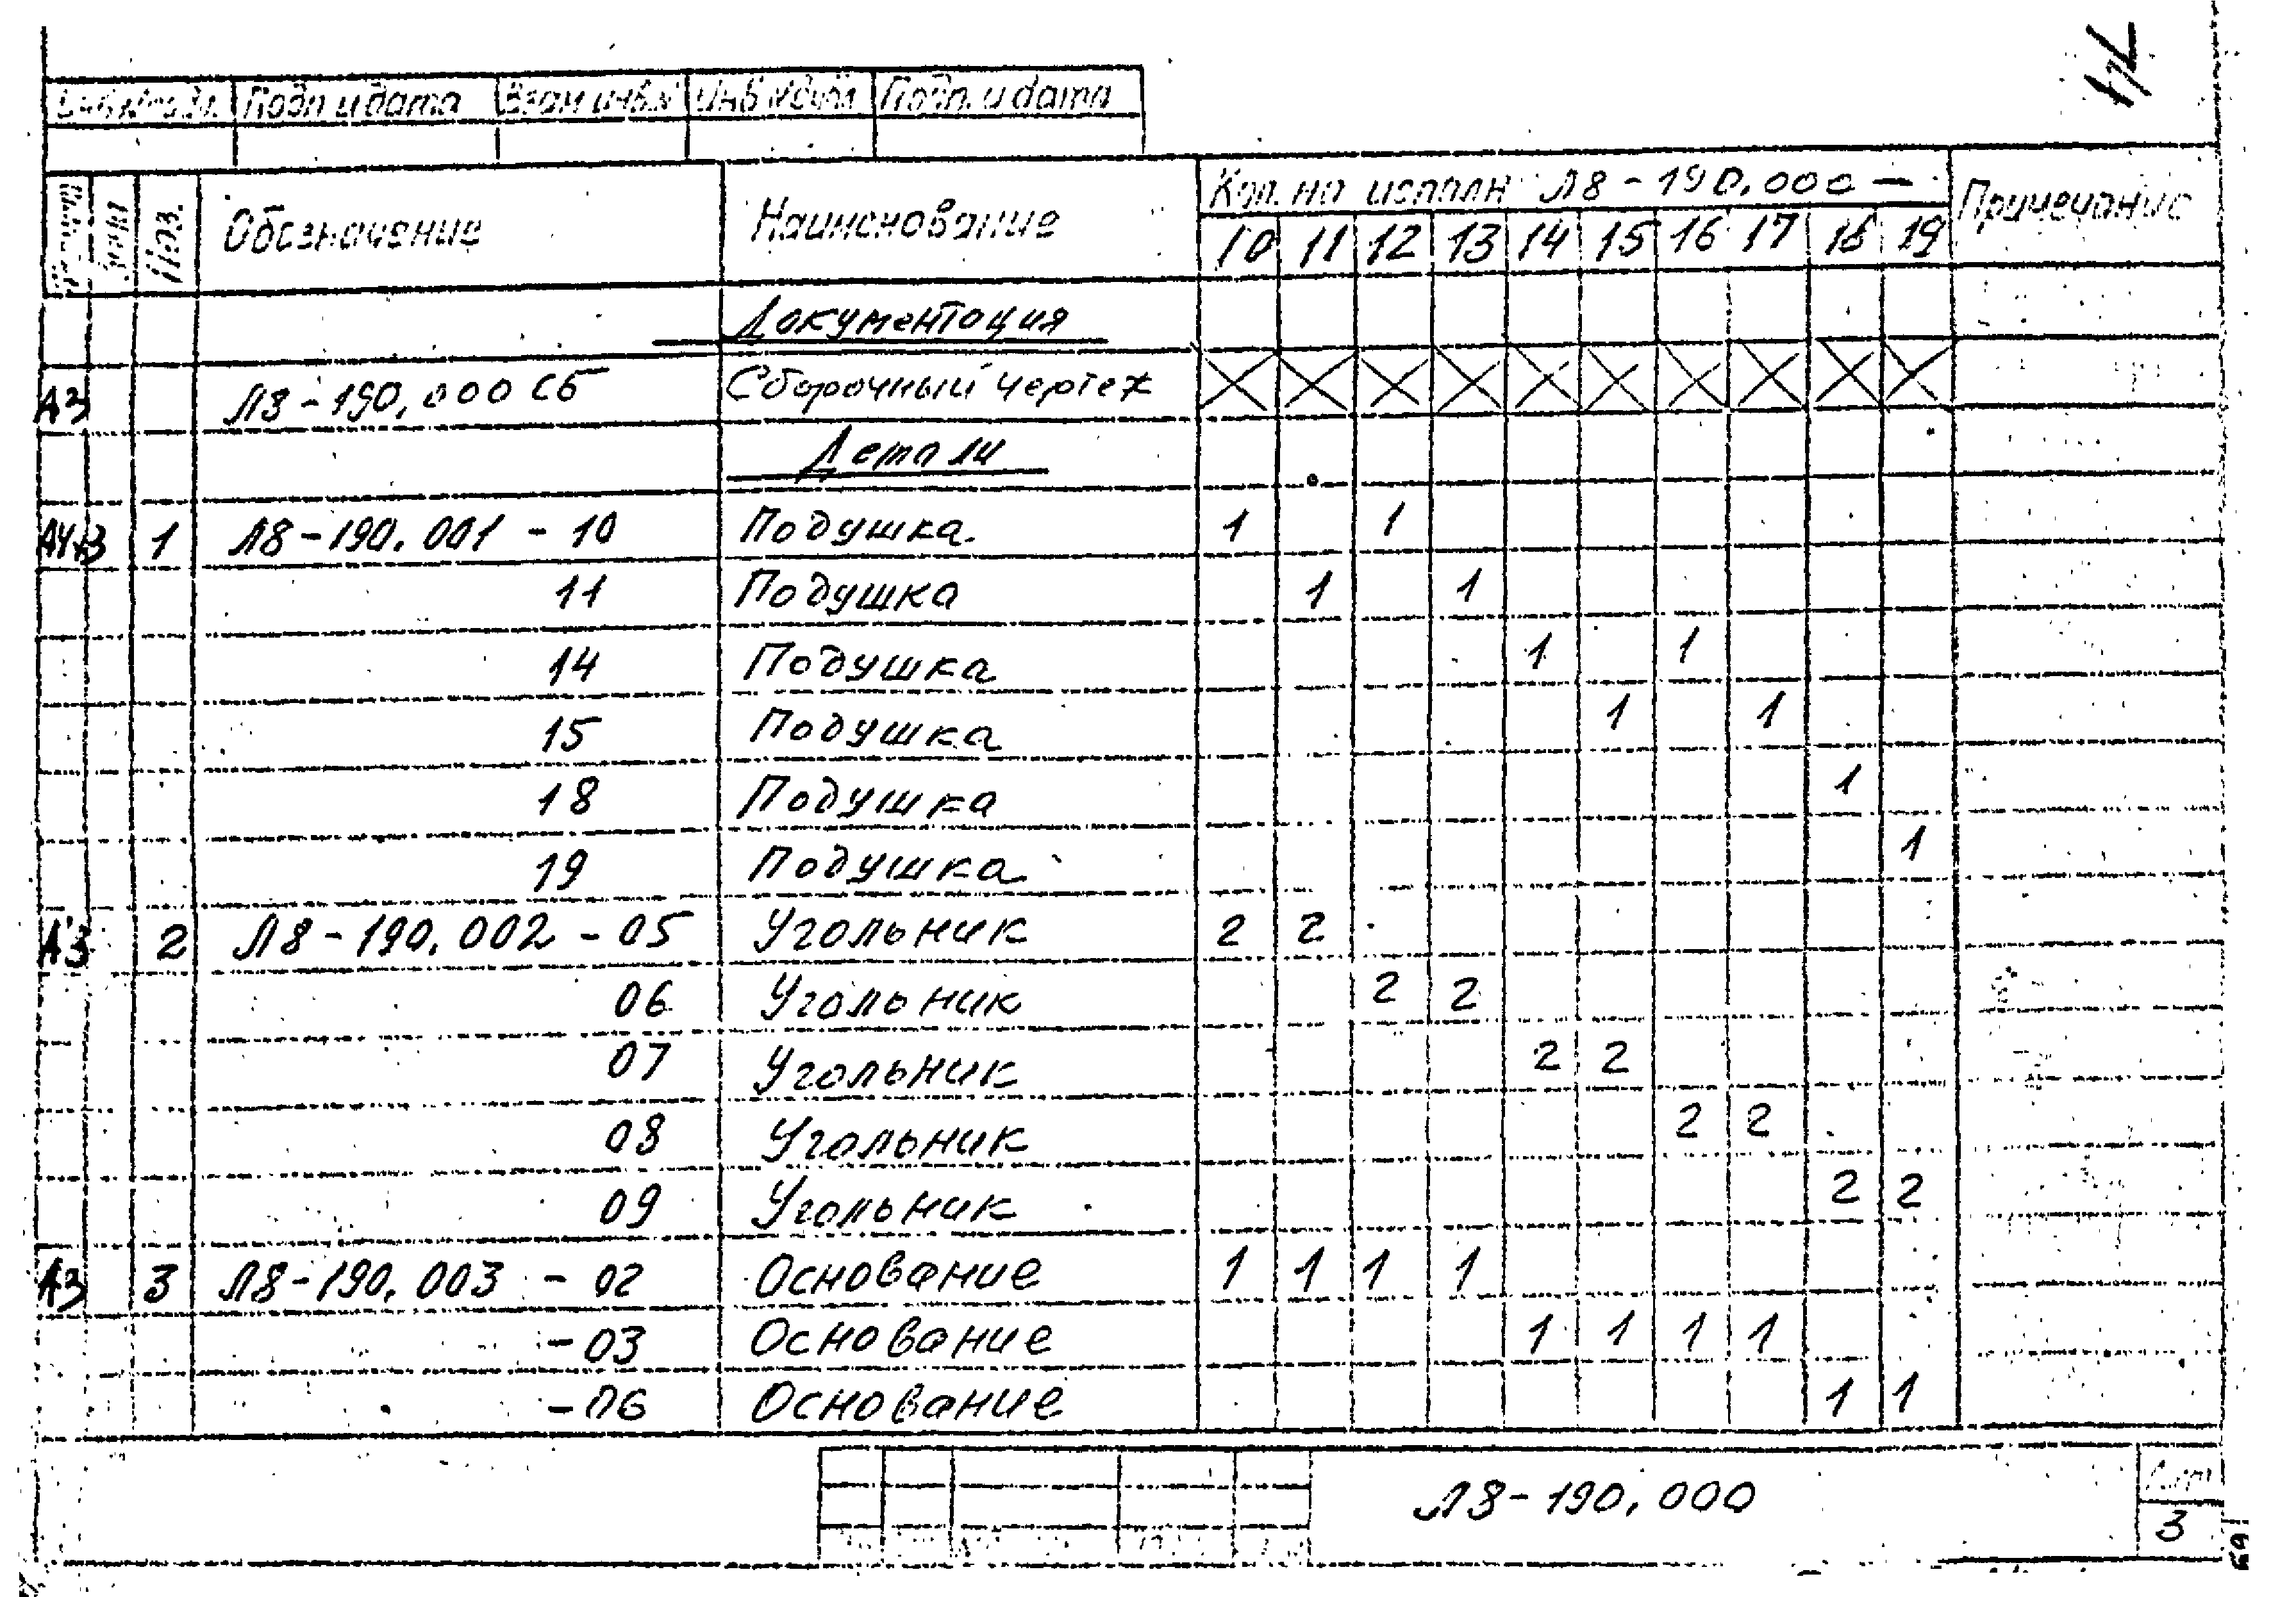 Подп и дата Взам инв.№ Инв № дубл Подп. и дата
Поз. Обозначение Наименование Кол. на исполн Л8-190.000- Примечание
10 11 12 13 14 15 16 17 18 19
Документация
А3 Л8-190.000 СБ Сборочный чертеж
Детали
А4х3 1 Л8-190.001 - 10 Подушка 1 1
11 Подушка 1 1
14 Подушка 1 1
15 Подушка 1 1
18 Подушка 1
19 Подушка 1
А3 2 Л8-190.002 - 05 Угольник 2 2
06 Угольник 2 2
07 Угольник 2 2
08 Угольник 2 2
09 Угольник 2 2
А3 3 Л8-190.003 - 02 Основание 1 1 1 1
-03 Основание 1 1 1 1
-06 Основание 1 1
Л8-190.000 Лист
3
69